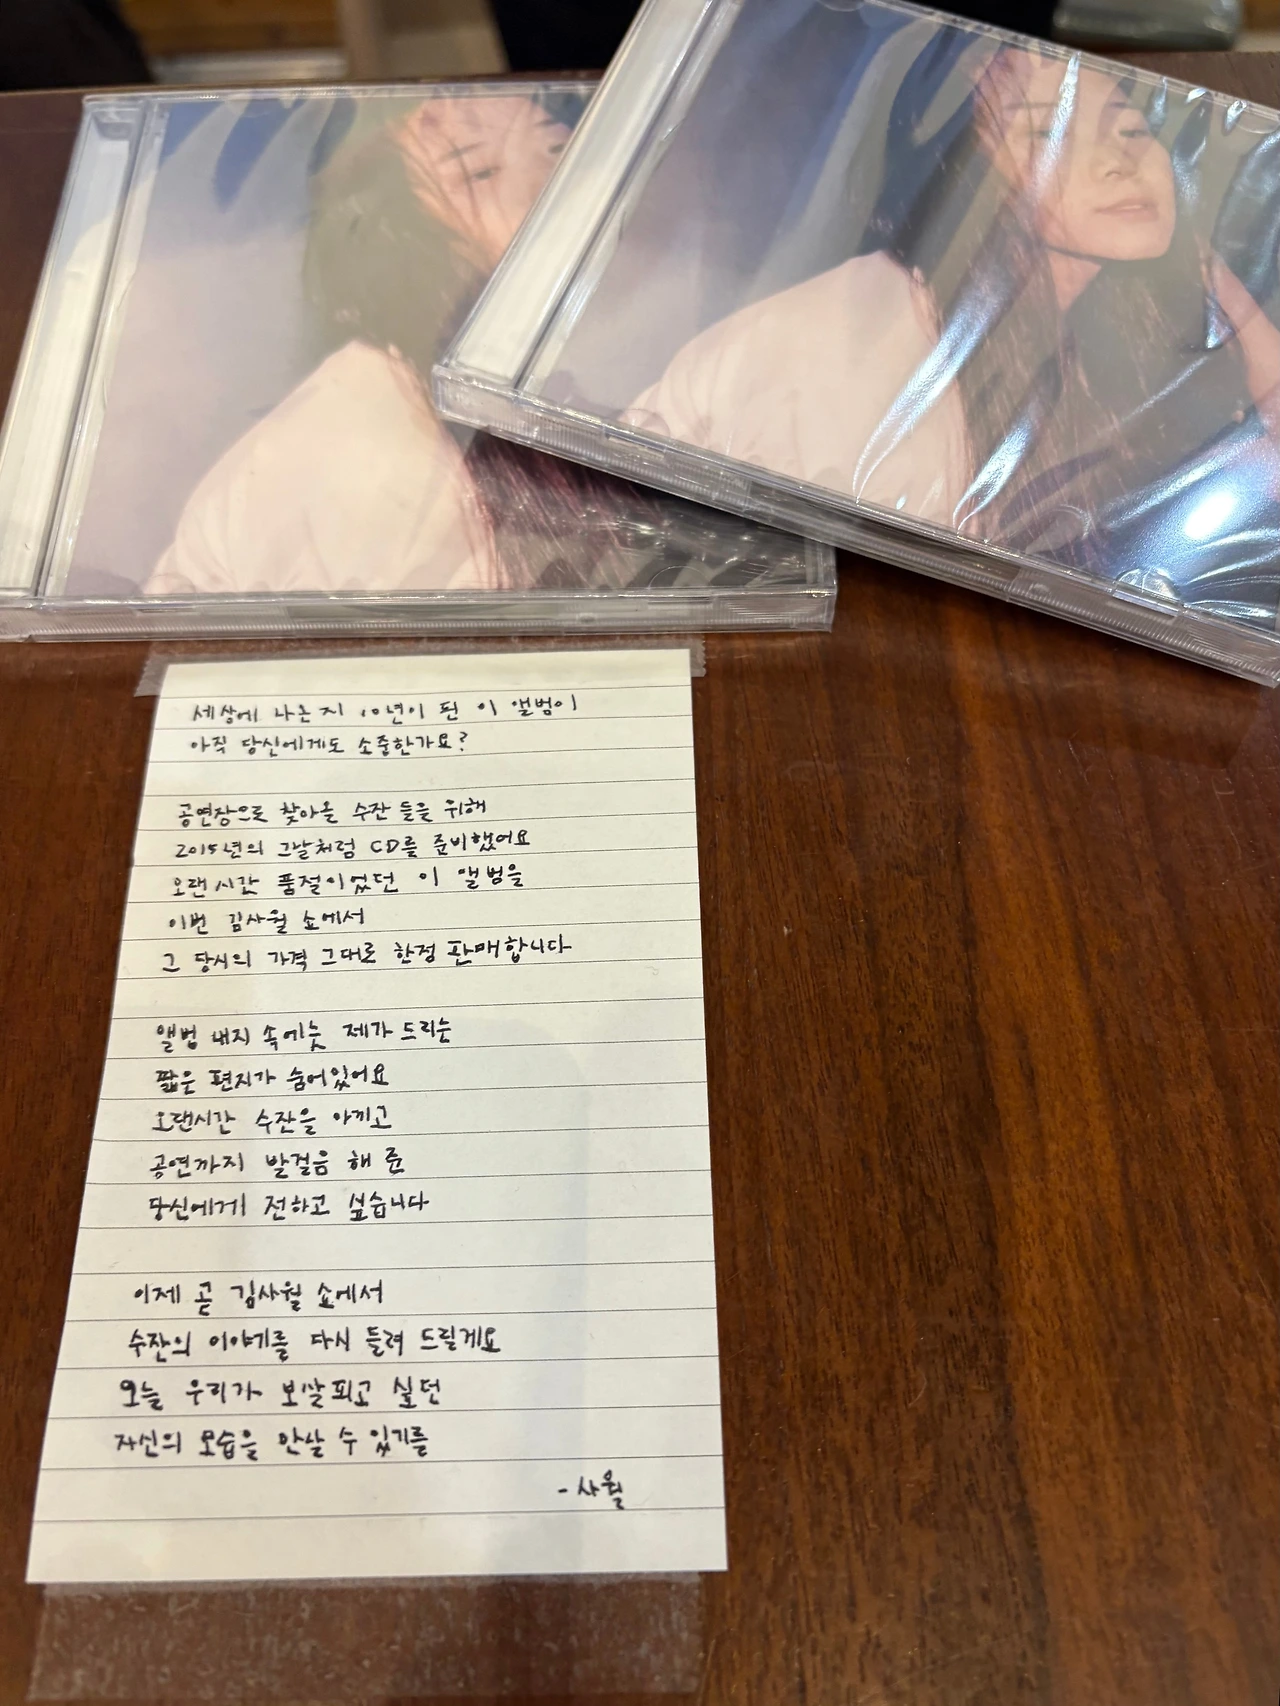 세상에 나온지 10년이 된 이 앨범이
아직 당신에게도 소중한가요?
공연장으로 찾아올 수잔 들을 위해
2015년의 그날처럼 CD를 준비했어요
오랜시간 품절이었던 이 앨범을
이번 김사월 쇼에서
그 당시의 가격 그대로 한정 판매합니다
앨범 내지 속에는 제가 드리는
짧은 편지가 숨어있어요
오랜시간 수잔을 아끼고
공연까지 발걸음 해 준
당신에게 전하고 싶습니다
이제 곧 김사월 쇼에서
수잔의 이야기를 다시 들려 드릴게요
오늘 우리가 보살피고 싶던
자신의 모습을 만날 수 있기를
- 사월